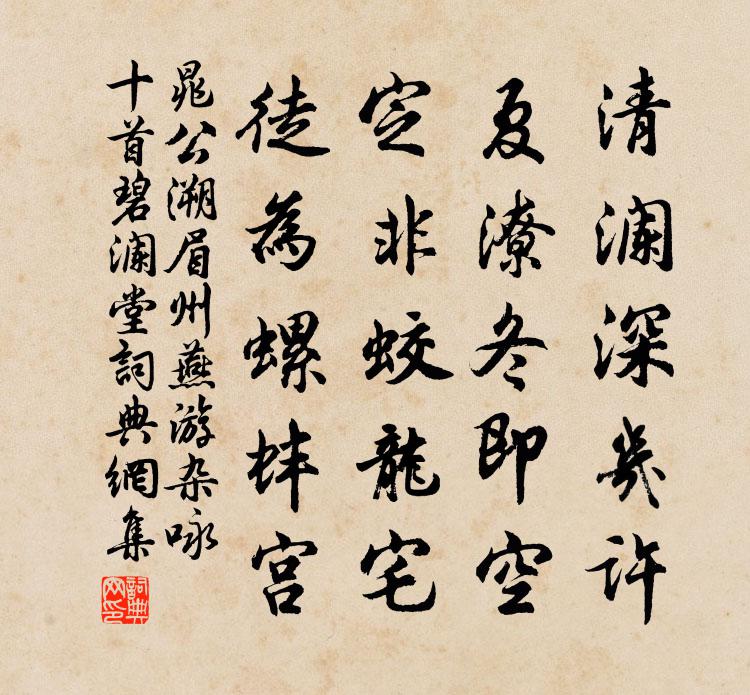 清澜深幾许
夏潦冬即空
定非蛟龍宅
徒為螺蚌宫
晁公溯眉州燕游杂咏
十首碧澜堂詞典網集
詞典网印